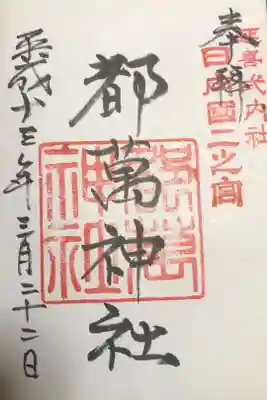 奉拝
延喜式内社
日向国二之宮
都萬神社
都萬神社
平成廿三年三月二十二日